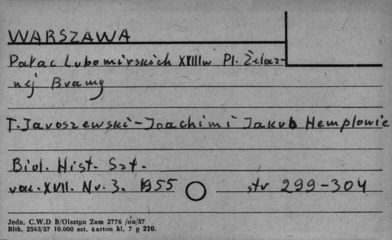 WARSZAWA
Pałac Lubomirskich XVIIIw Pl. Żelaz-
nej Bramy
T. Jaroszewski-Joachim i Jakub Hemplowie
Biul. Hist. Szt.
roc. XVII. Nr. 3. 1955 str 299-304
Jedn. C.W.D B/Olsztyn Zam 2776 /on/57
Bltk. 2563/57 10.000 szt. karton kl. 7 g 220.